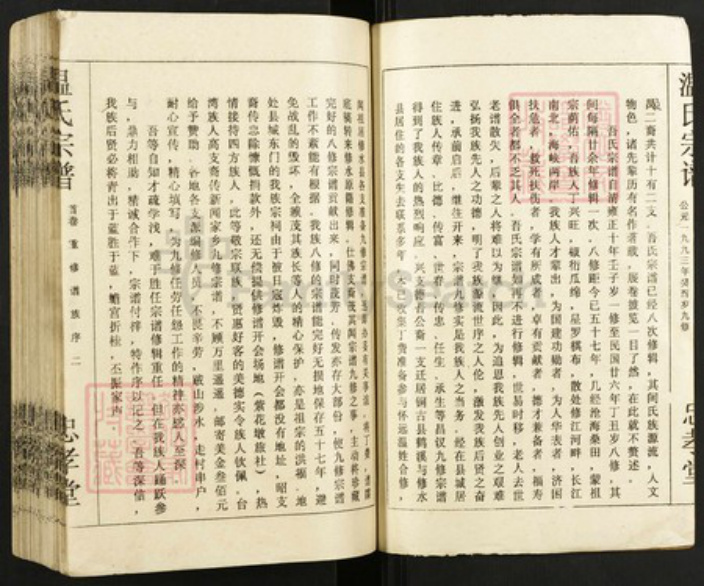 温氏宗谱
公元一九九三年癸酉岁九修
忠孝堂
万二裔共计十有二支。吾氏宗谱已经八次修辑，其间氏族源流，人文
物色，诸先辈历有名作著藏，展卷披览一目了然，在此就不赘述。
吾氏宗谱自清雍正十年壬子岁一修至民国廿六年丁丑岁八修，其
间每隔廿余年修辑一次。八修距今已五十七年，几经沧海桑田，蒙祖
宗荫佑，吾族人丁兴旺，硕衍瓜绵，星罗棋布，散处修江河畔，长江
南北，海峡两岸。我族人才辈出，为国建功勋者，为人华表者，济困
扶危者，救死扶伤者，学有所成者，卓有贡献者，德才兼备者，福寿
俱全者都不乏其人。吾氏宗谱如再不进行修辑，世易时移，老人去世
老谱散失，后辈之人将难以为继，因此，为追思我族先人创业之艰难
弘扬我族先人之功德，明了我族源流世序之人伦，激发我族后贤之奋
进，承前启后，继往开来，宗谱九修实是我族人之当务。经在县城居
住族人传章、比德、传富、世春、传忠、任生、承生等昌议九修宗谱
得到了我族人的热烈响应，兴文德者公裔一支迁居铜古县鹤溪与修水
县居住的各支生去联系多年，
完好的八修宗谱贡献出来，同时茂芳、传发亦存大部份，使九修宗谱
工作不紊能有根据。我族八修的宗谱能完好无损地保存五十七年，避
免战乱的毁坏，全赖茂其族长等人的精心保护，亦是祖宗的洪福。地
处县城东门的我族宗祠由于被日寇炸毁，修谱开会都没有地址，昭支
裔传忠除慷慨捐款外，还无偿提供修谱开会场地（紫花墩旅社），热
情接待四方族人，此等敬宗联族、贤惠好客的美德实令族人钦佩。台
湾族人高支裔传新闻家乡九修宗谱，不顾万里遥遥，邮寄美金叁佰元
给予赞助。各地各支派编修人员，不畏辛劳，跋山涉水，走村串户，
耐心宣传，精心填写，为九修任劳任怨工作的精神亦感人至深。
吾等自知才疏学浅，难于胜任宗谱修辑重任，但在我族人踊跃参
与，鼎力相助，精诚合作下，宗谱付梓，特作序以记之。吾等深信，
我族后贤必将青出于蓝胜于蓝，蟾宫折桂，丕振家声。
温氏宗谱
首卷 重修谱族序 二
忠孝堂